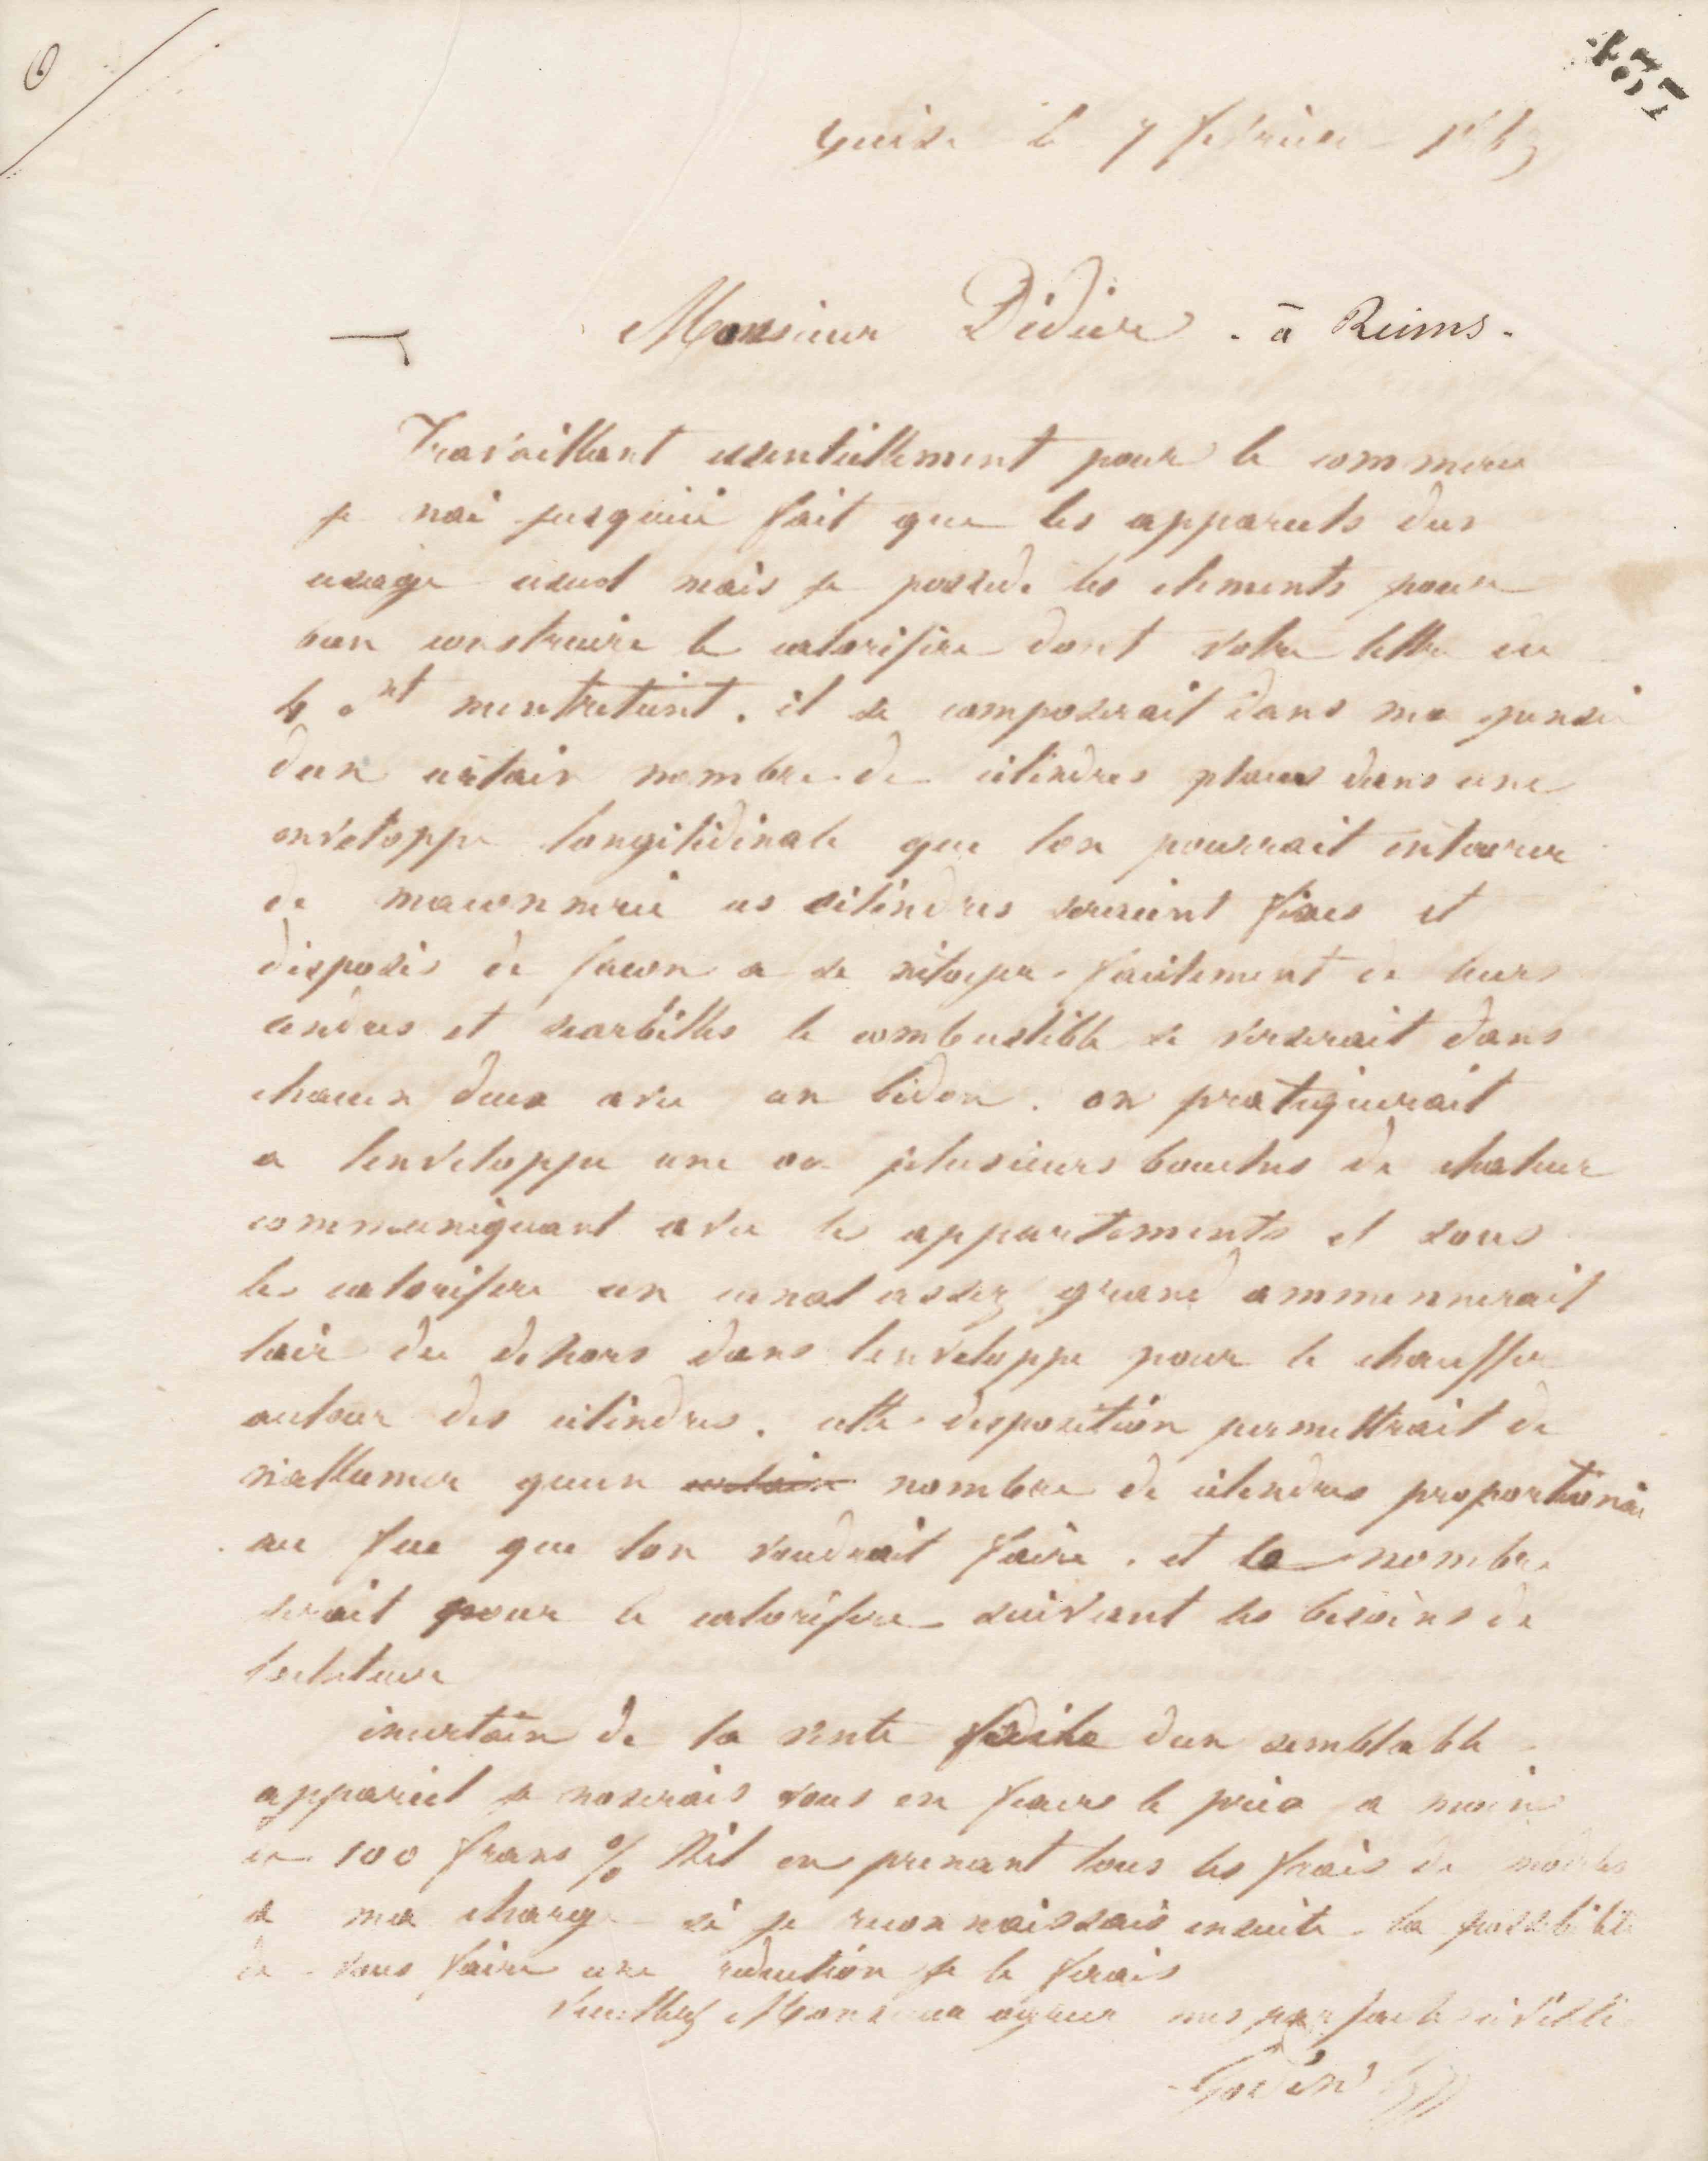 6
457
Guise le 7 février
Monsieur Didier . à Reims .
Travaillant essentiellement pour le commerce
je nai jusquici fait que les appareils dus
usage usuel mais je possede les elements pour
bien construire le calorifere dont votre lettre du
4 ct mentretient . il se composerait dans ma pensée
dun certain nombre de cilindres places dans une
enveloppe longitidinale que lon pourrait entourer
de maconnerie ces cilindres seraient fixes et
disposés de facon a se nitoyer facilement de leurs
cendres et scarbilles le combustible se verserait dans
chacun deux avec un bidon . on pratiquerait
a lenveloppe une ou plusieurs bouches de chaleur
communiquant avec les appartements et sous
le calorifere un canal assez grand ammennerait
lair du dehors dans lenveloppe pour le chauffer
autour des cilindres . cette disposition permettrait de
nallumer quun certain nombre de cilendres proportionné
au feu que lon voudrait faire . et le nombre
serait pour le calorifere suivant les besoins de
lacheteur
incertain de la vente facile dun semblable
appareil je noserais vous en fixer le prix a moins
de 100 francs % Kil en prenant tous les frais de modeles
a ma charge si je reconnaissais ensuite la possibilité
de vous faire une reduction je le ferais
Veuillez Monsieur agreer mes parfaites civilités
Godin